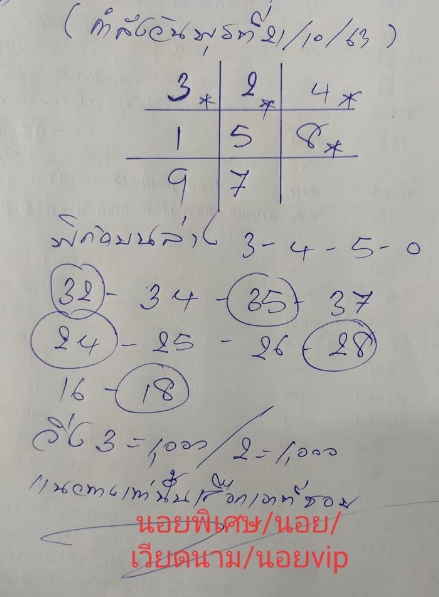 (กำลังวันพุธที่21/10/63)
3* 2* 4*
1 5 8*
9 7
พิกัดบนล่าง 3-4-5-0
32 - 34 - 35 - 37
24 - 25 - 26 - 28
16 - 18
วิ่ง 3 = 1,000 / 2 = 1,000
แนวทางเท่านั้นเลือกเอาที่ชอบ
นอยพิเศษ/นอย/
เวียดนาม/นอยvip